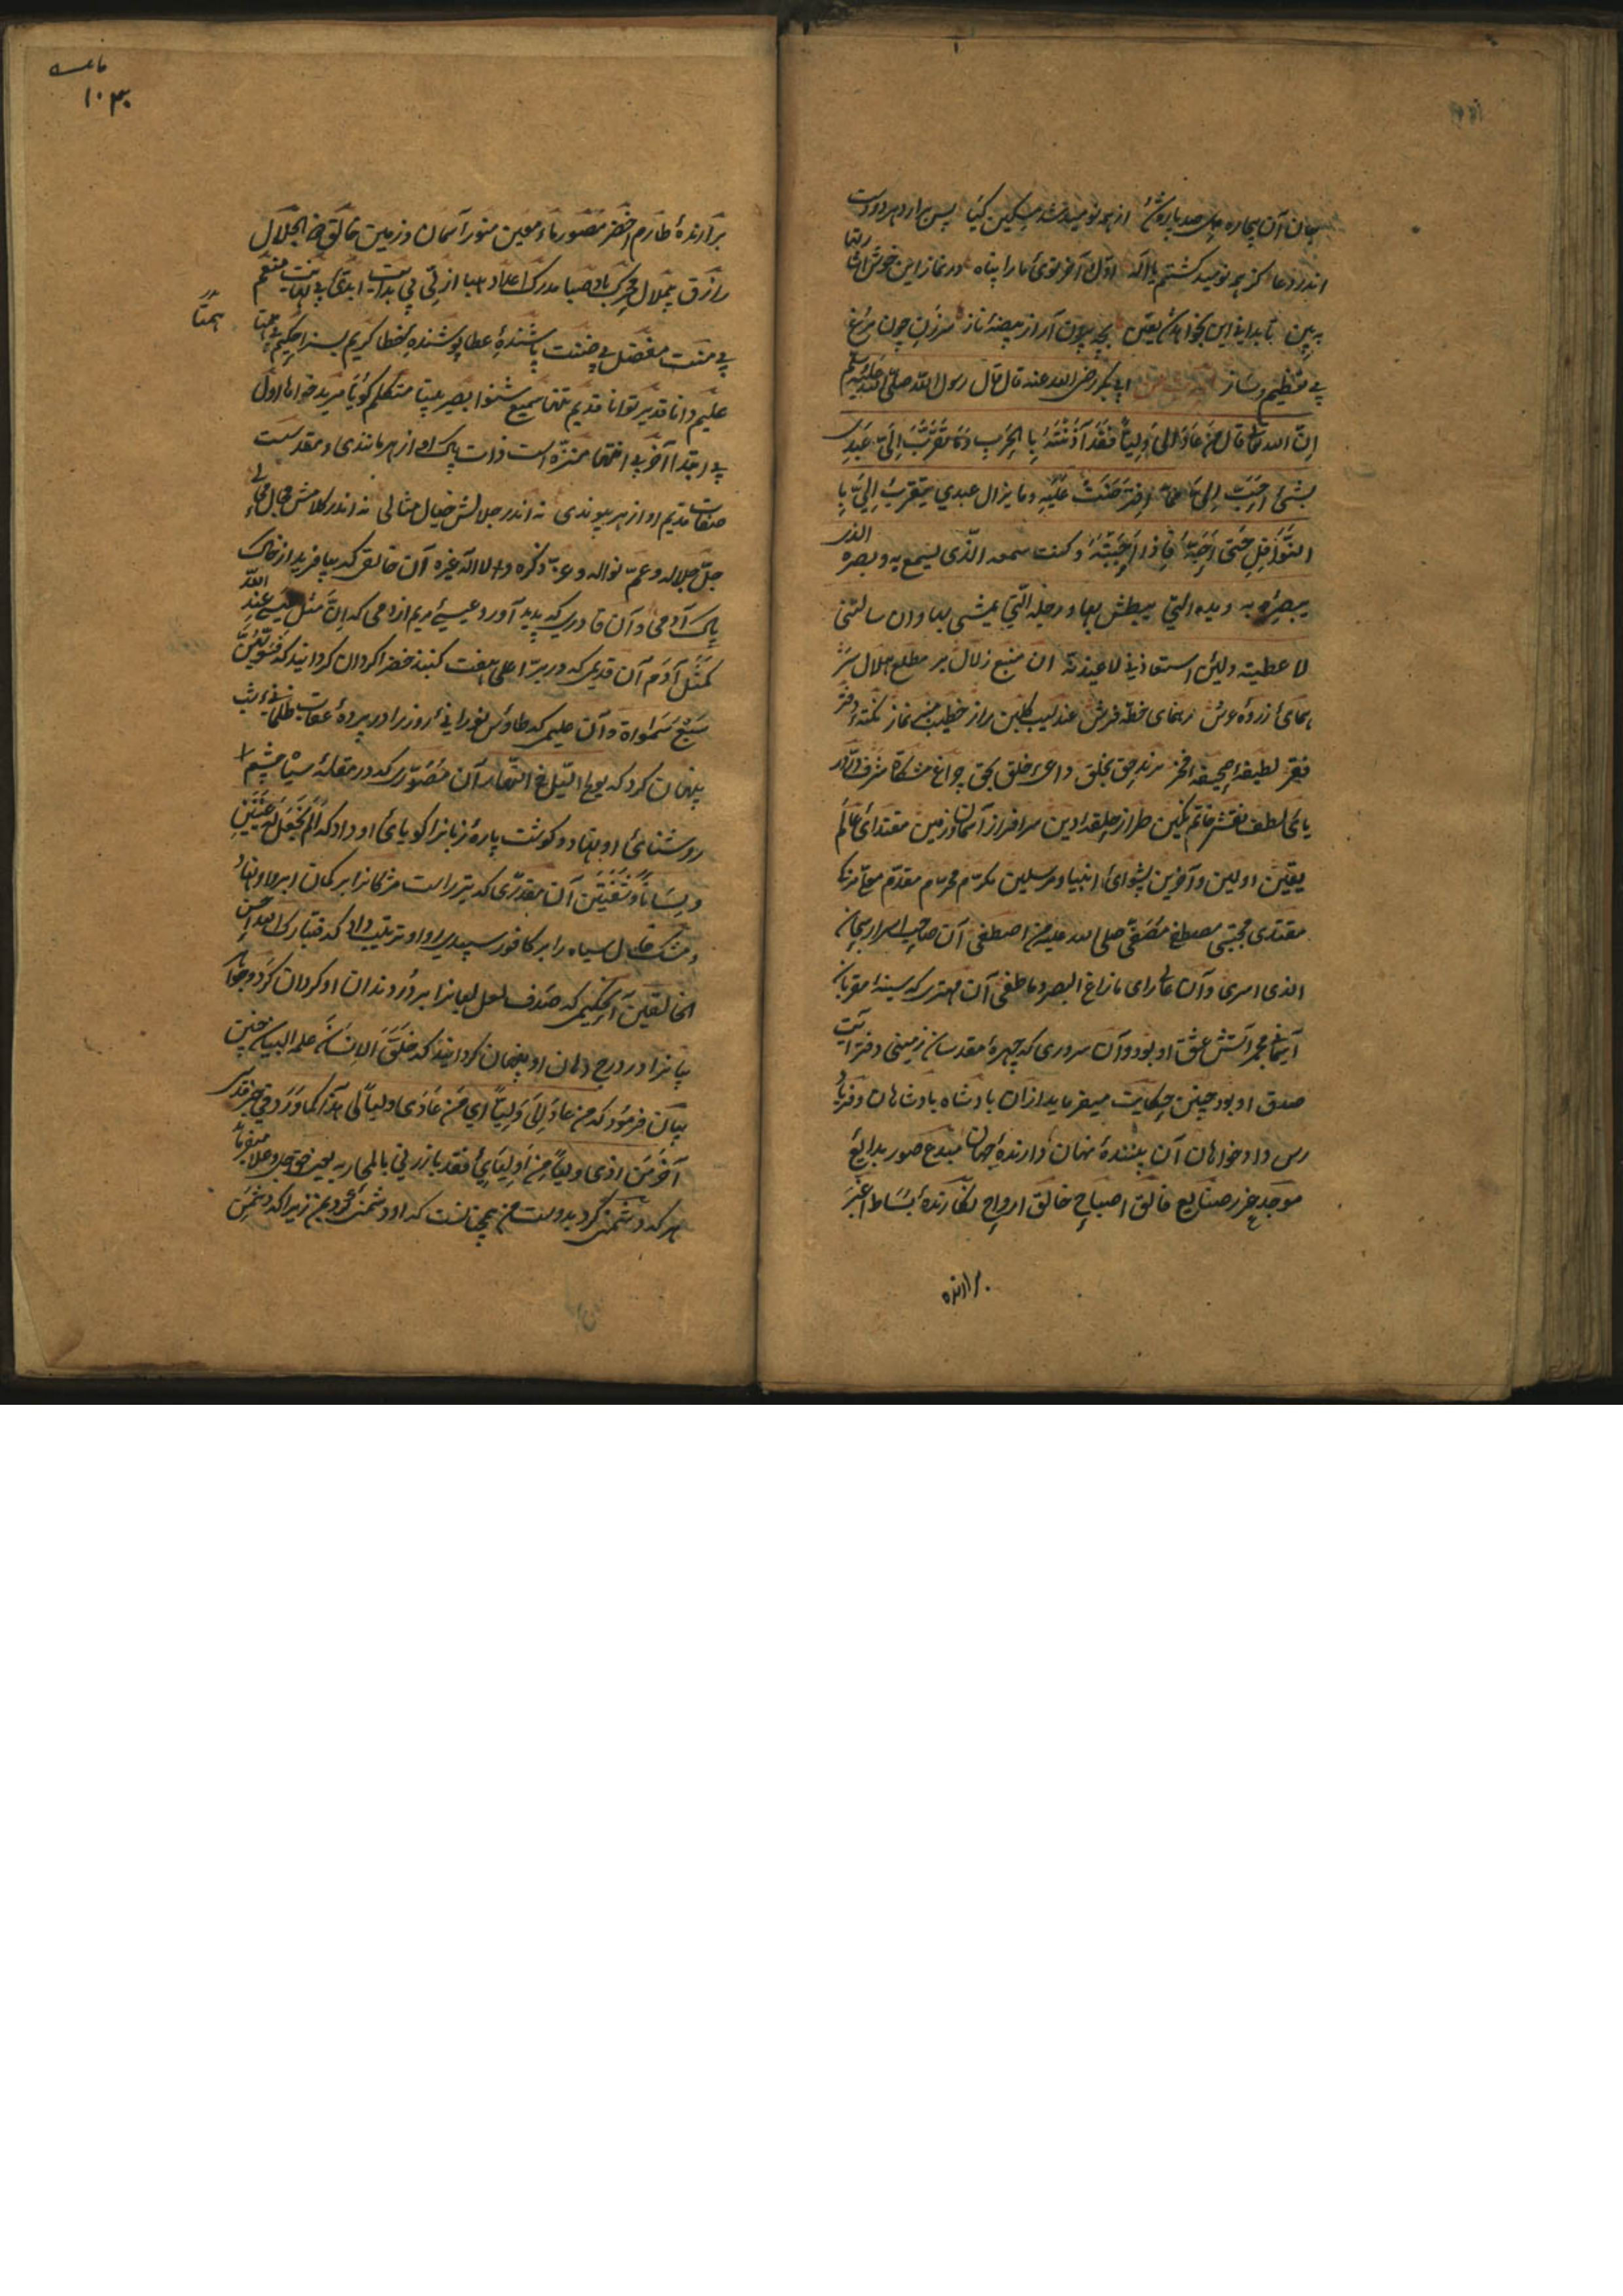 بجان آن بیچاره دل صد پاره شد از همه نومید شد مسکین کیا پس برآرد هر دو دست
اندر دعا کز همه نومید کشتم یا اله اول و آخر توئی ما را پناه در نماز این خوش اشارتها
به بین تا بدانی این بخواهد شد یقین بچه بیرون آر از بیضهٔ نماز سر مزن چون مرغ
بی تعظیم و ساز ابی بکر رضی الله عنه قال قال رسول الله صلی الله علیه وسلم
ان الله تعالی قال من عاد لی ولیا فقد آذنته با الحرب و ما تقرب الی عبدی
بشی احب الی مما افترضت علیه و ما یزال عبدی یتقرب الی با
النوافل حتی احبه فاذا احببته و کنت سمعه الذی یسمع به و بصره الذی
یبصر به و یده التی یبطش بها و رجله التی یمشی بها و ان سالتنی
لا عطیته ولئن استعاذنی لاعیذنه ان منبع زلال بر مطلع هلال سر
همای ذروه عرش رهنمای خطه فرش عندلیب راز خطیب نماز نکته دفتر
فقر لطیفه صحیفه فخر مرند حق بخلق داعی خلق بحق چراغ مشکاة شرف
یای لطف نقش خاتم نکین طراز حلقه دین سرافراز آسمان و زمین مقتدای عالم
یقین اولین و آخرین پشوای انبیا و مرسلین مکرم محرم مقدم معلم
مقتدی مجتبی مصطفی مصفی صلی الله علیه من اصطفی آن صاحب اسرار سبحان
الذی اسری و آن عالم رای ما زاغ البصر و ما طغی آن مهتری که سینه مقربان
آسمانی مجمر آتش عشق او بود و آن سروری که چهره مقدسان زمینی دفتر آیت
صدق او بود چنین حکایت میفرماید از آن بادشاه بادشاهان و فریاد
رس دادخواهان آن بینندهٔ نهان دارندهٔ جهان مبدع صور بدایع
موجد غرر صنایع فالق اصباح خالق ارواح نکارندهٔ بساط اغبر
برارنده
۱۰۳۰
برارندهٔ طارم اخضر مصور ماء معین منور آسمان و زمین خالق ذو الجلال
رازق بیملال محرک باد صبا مدرک اعداد هبا ازلی بی بدایت ابدی بی نهایت منعم
بی منت مفضل بی ضنت پاشندهٔ عطا پوشندهٔ خطا کریم بسزا حکیم بی همتا
همتا
علیم دانا قدیر توانا قدیم تنها سمیع شنوا بصیر بینا متکلم کویا مرید خواها اول
بی ابتدا آخر بی انتها منزه است ذات پاک او از هر مانندی و مقدست
صفات قدیم او از هر پیوندی نه اندر جلالش خیال مثالی نه اندر کلامش مجال محالی
جل جلاله و عم نواله و عز ذکره و لا اله غیره آن خالقی که بیافرید از خاک
پاک آدمی و آن قادری که پدید آورد عیسی مریم از دمی که ان مثل عیسی عند الله
کمثل آدم آن قدیری که در بر اعلی هفت کنبد خضرا کردان کردانید که فسویهن
سبع سموات و آن علیمی که طاوس نورانی روز را در پرده عقاب ظلمانی شب
پنهان کرد که یولج اللیل فی النهار آن مصوری که در مقلهٔ سیاه چشم
روشنائی او نهاد و کوشت پارهٔ زبانرا کویائی او داد که الم نجعل له عینین
و لسانا و شفتین آن مقدری که تیر راست مژکانرا بر کمان ابرو او نهاد
و مشک خال سیاه را بر کافور سپید رو او ترتیب داد که فتبارک الله احسن
الخالقین آن حکیمی که صدف لعل لبانرا بر در دندان او کردان کرد و جواهر
بیانرا در درج دهان او پنهان کردانید که خلق الانسان علمه البیان چنین
بیان فرمود که من عاد لی ولیا ای من عادی ولیا لی هذا کما ورد فی خبر قدسی
آخر من اذی ولیا من اولیائی فقد بارزنی بالمحاربه یعنی حق جل و علا میفرماید
هر که دشمنی کرد بدوست من همچنانست که او دشمنی کرد بمن زیرا که دشمن